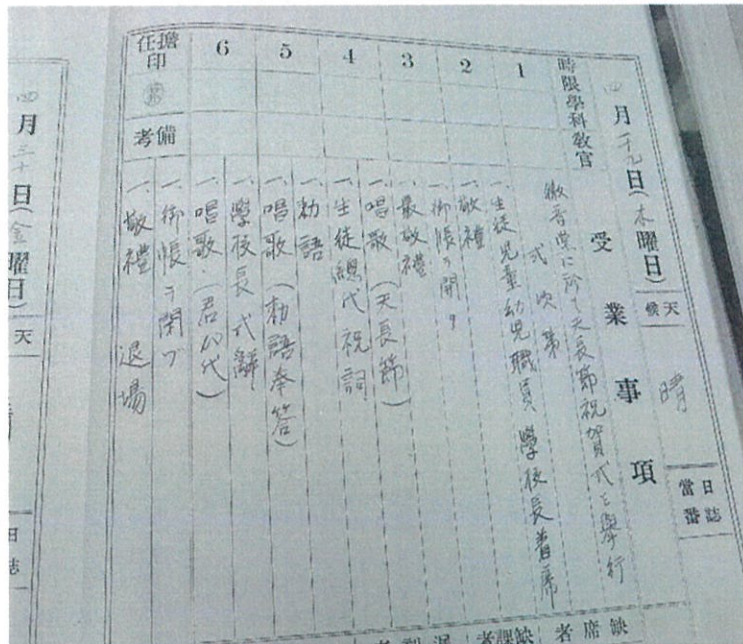 四月二十九日(木曜日)
天候
晴
日誌當番
受業事項
時限學科教官
1
2
3
4
5
6
擔任印
備考
徽音堂に於て天長節祝賀式を擧行
式次第
一、生徒児童幼児職員學校長着席
一、敬禮
一、御帳ヲ開ク
一、最敬禮
一、唱歌(天長節)
一、生徒總代祝詞
一、勅語
一、唱歌(勅語奉答)
一、學校長式辭
一、唱歌(君が代)
一、御帳ヲ閉ヅ
一、敬禮 退場
缺席者
缺課者
四月三十日(金曜日)
天
日
誌